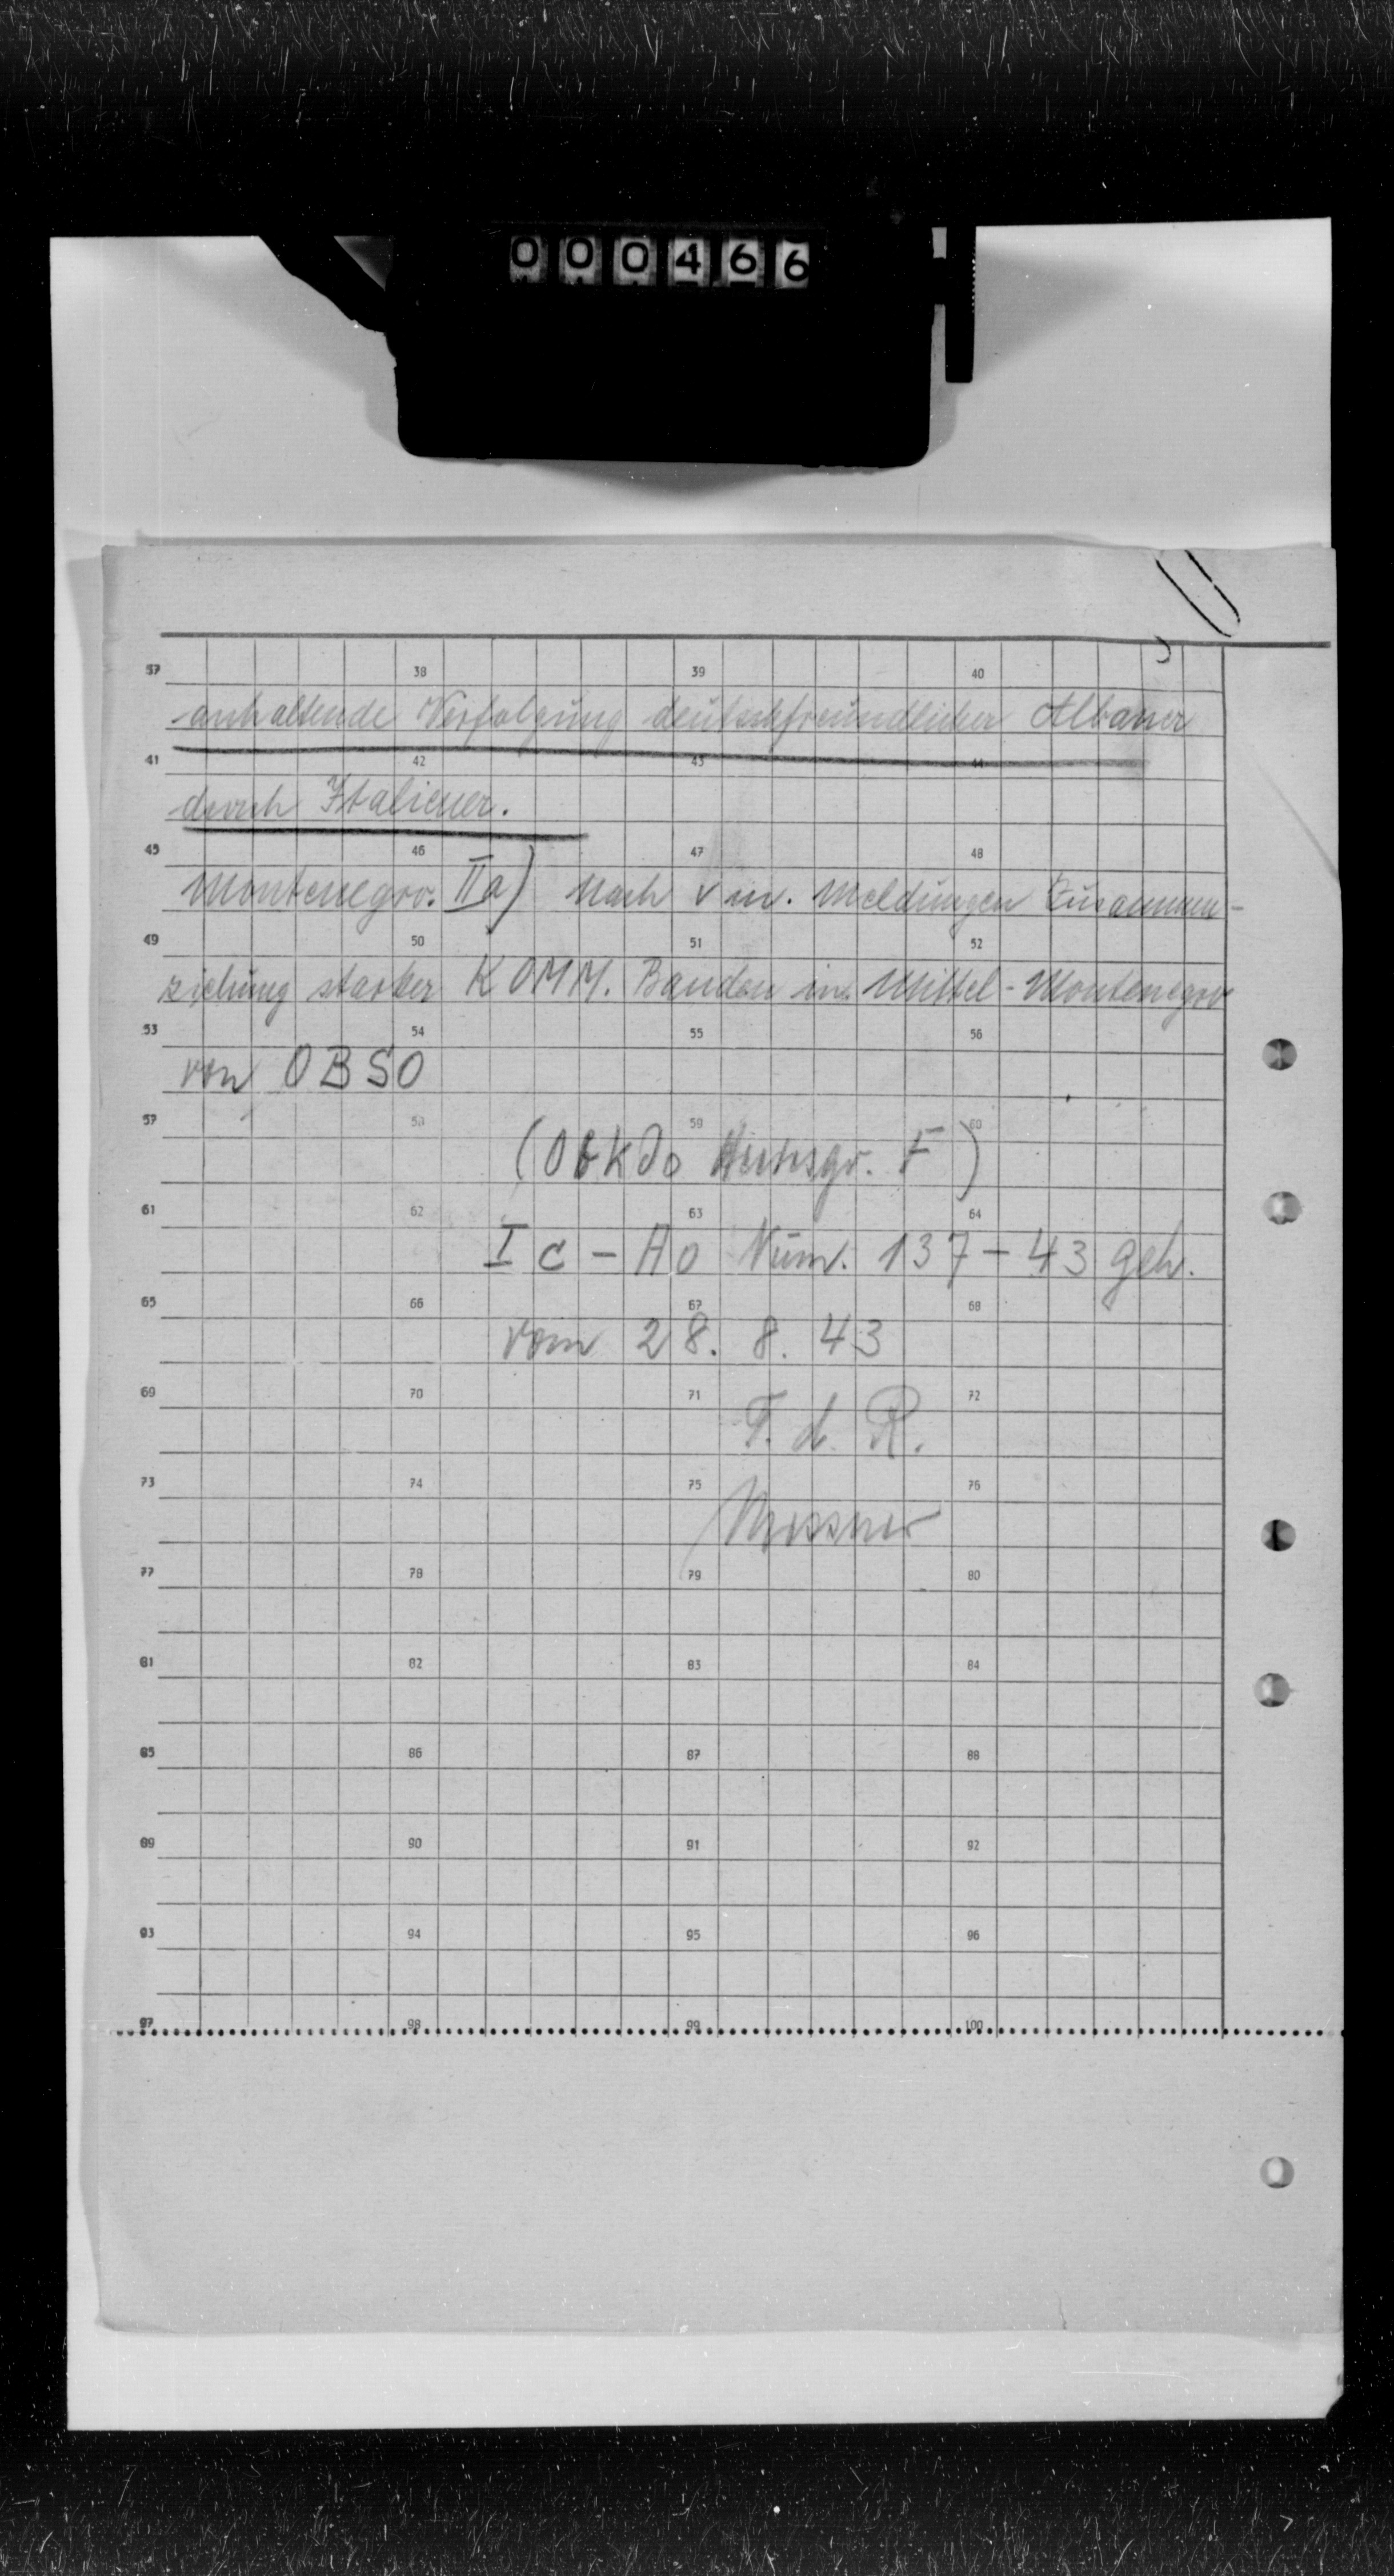 000466
37 38 39 40
anhaltende Verfolgung deutschfreundlicher Albaner
41 42 43 44
durch Italiener.
45 46 47 48
Montenegro. IIa) Nach v m. Meldungen Zusammen-
49 50 51 52
ziehung starker KOMM. Banden in Mittel-Montenegro
53 54 55 56
von OBSO
57 58 59 60
(ObKdo Heeresgr. F)
61 62 63 64
I c - AO Num. 137-43 geh.
65 66 67 68
vom 28. 8. 43
69 70 71 72
F. d. R.
73 74 75 76
Messner
77 78 79 80
81 82 83 84
85 86 87 88
89 90 91 92
93 94 95 96
97 98 99 100